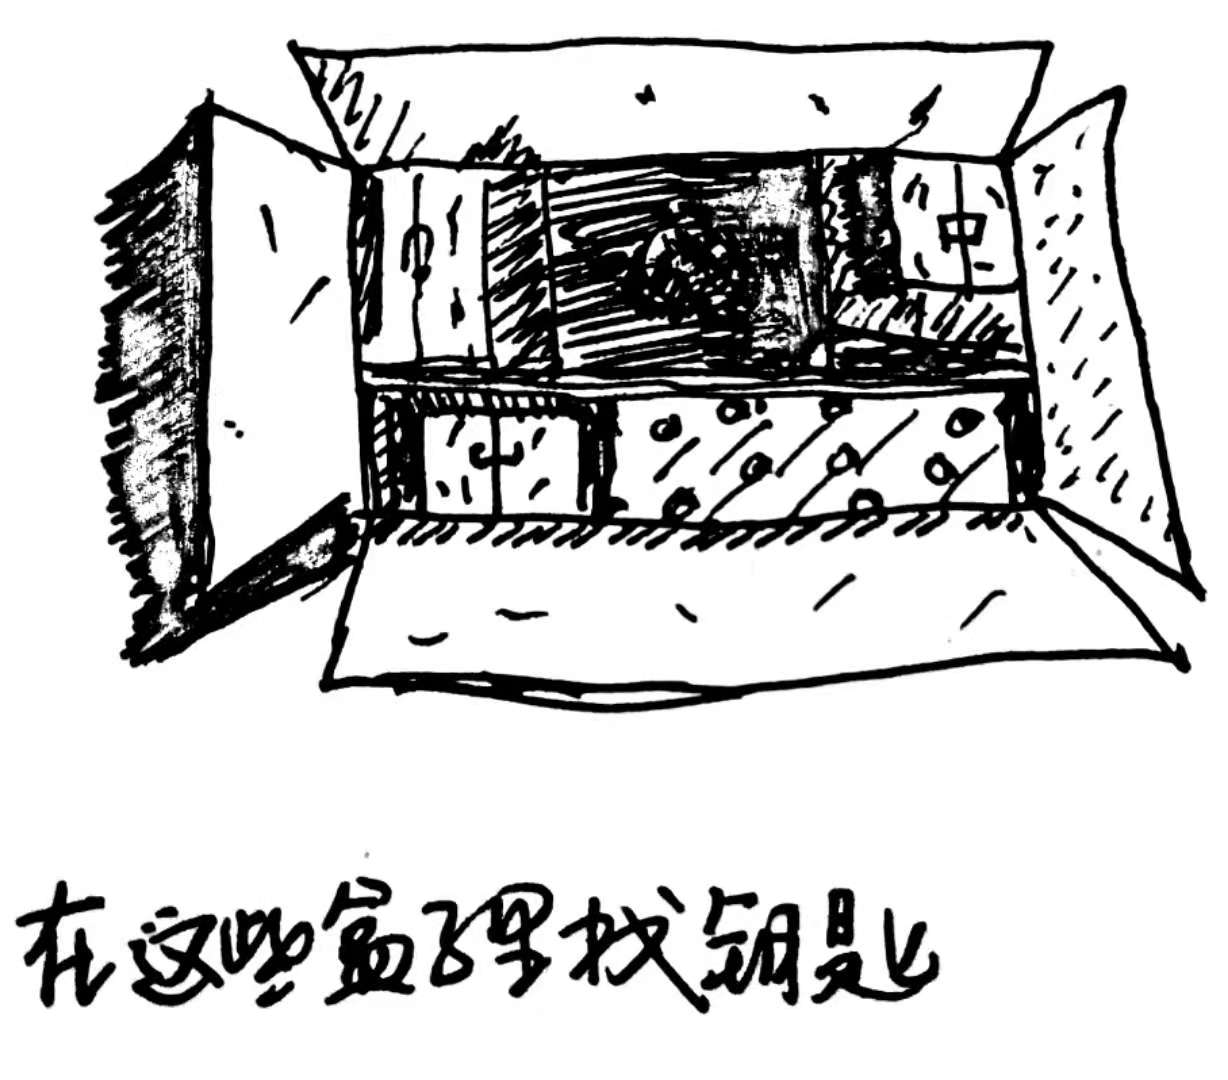 在这些盒子里找钥匙